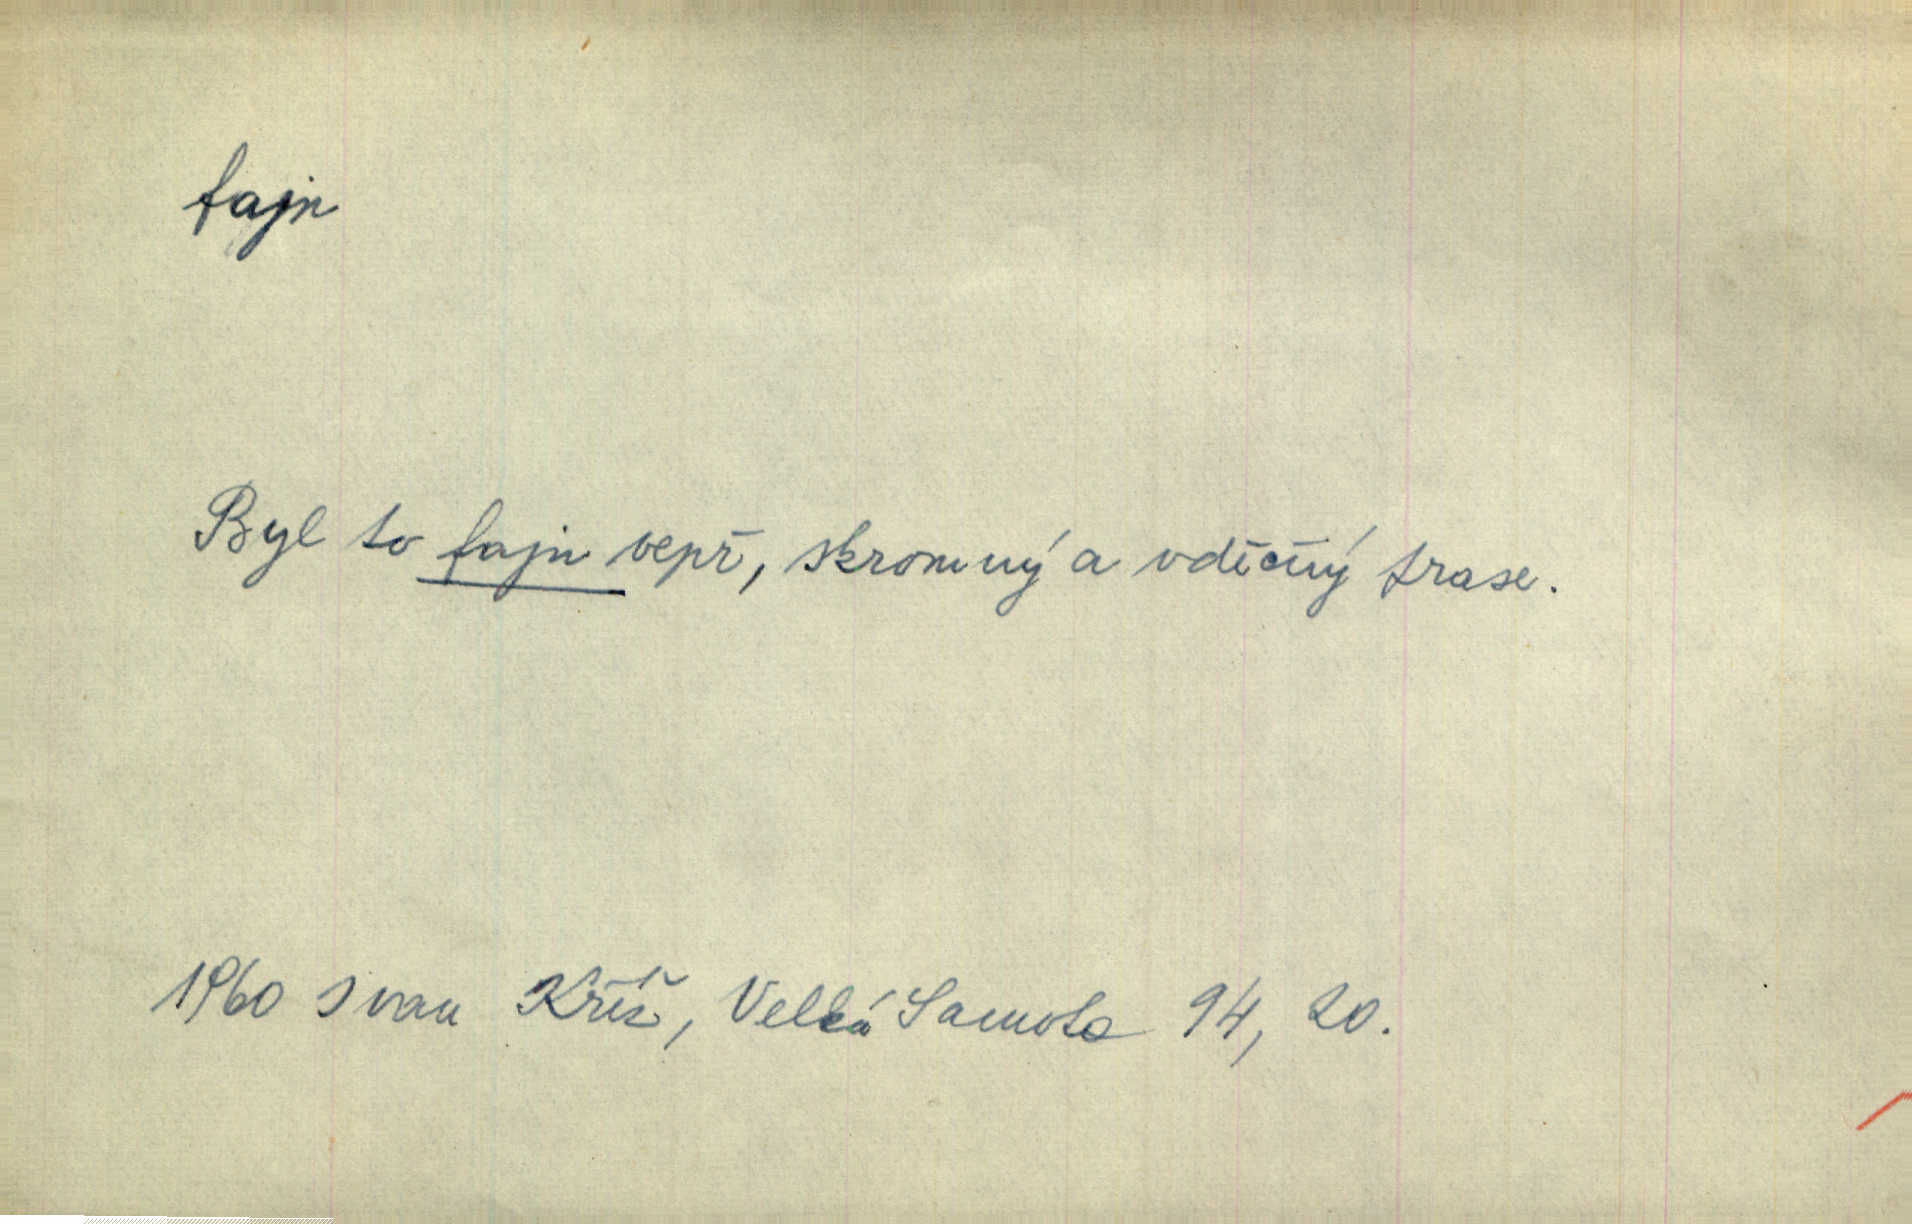 fajn
Byl to fajn vepř, skromný a vděčný prase.
1960 Ivan Kříž, Velká Samota 94, 20.